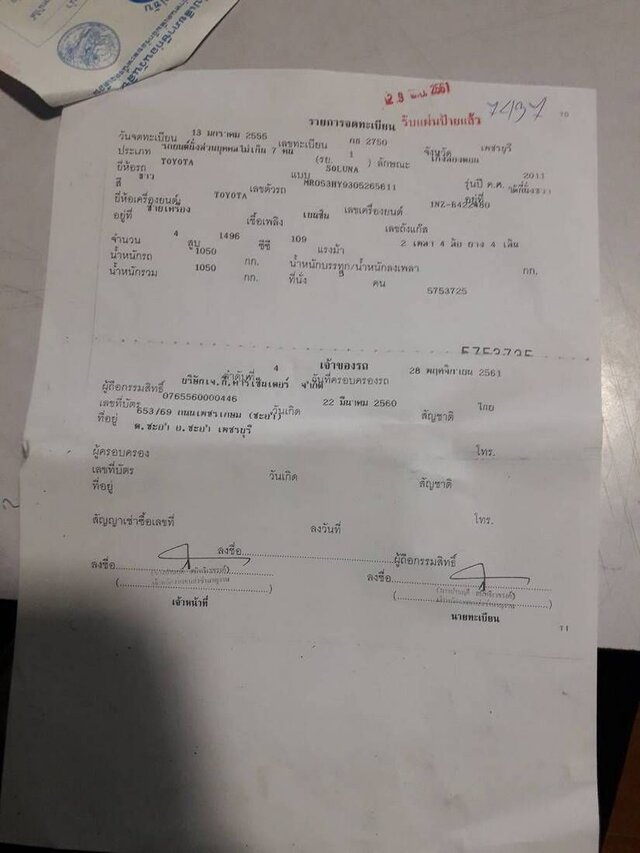 2 9 พ.ย. 2561
รายการจดทะเบียน รับแผ่นป้ายแล้ว 7437 70
วันจดทะเบียน 13 มกราคม 2555 เลขทะเบียน กธ 2750 จังหวัด เพชรบุรี
ประเภท รถยนต์นั่งส่วนบุคคลไม่เกิน 7 คน (รย. 1 ) ลักษณะ เก๋งสองตอน
ยี่ห้อรถ TOYOTA แบบ SOLUNA รุ่นปี ค.ศ. 2011
สี ขาว เลขตัวรถ MR053HY9305265611 อยู่ที่
ยี่ห้อเครื่องยนต์ TOYOTA เลขเครื่องยนต์
อยู่ที่ ซ้ายเครื่อง เชื้อเพลิง เบนซิน เลขถังแก๊ส
จำนวน 4 สูบ 1496 ซีซี 109 แรงม้า 2 เพลา 4 ล้อ ยาง 4 เส้น
น้ำหนักรถ 1050 กก. น้ำหนักบรรทุก/น้ำหนักลงเพลา กก.
น้ำหนักรวม 1050 กก. ที่นั่ง คน 5753725
5753725
เจ้าของรถ
ลำดับที่ 4 วันที่ครอบครองรถ 28 พฤศจิกายน 2561
ผู้ถือกรรมสิทธิ์ จำกัด
เลขที่บัตร 0765560000446 วันเกิด 22 มีนาคม 2560 สัญชาติ ไทย
ที่อยู่ 653/69 ถนนเพชรเกษม (ชะอำ)
ต.ชะอำ อ.ชะอำ เพชรบุรี
ผู้ครอบครอง โทร.
เลขที่บัตร วันเกิด สัญชาติ
ที่อยู่
โทร.
สัญญาเช่าซื้อเลขที่ ลงวันที่
ลงชื่อ ผู้ถือกรรมสิทธิ์
ลงชื่อ ลงชื่อ
เจ้าหน้าที่ นายทะเบียน
71